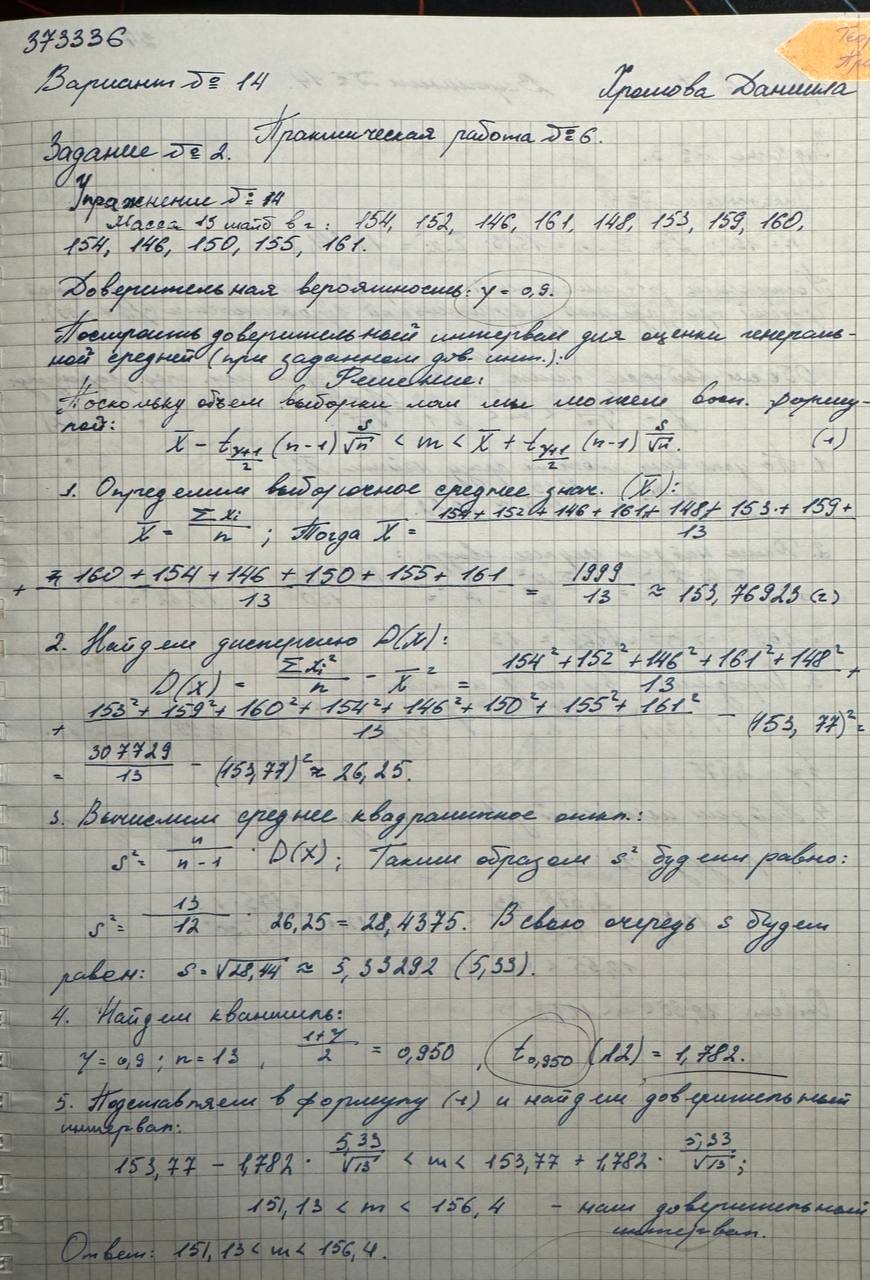 373336
Тео
Пр
Вариант № 14 Хромова Данила
Практическая работа № 6.
Задание № 2.
Упражнение № 14
Масса 13 шайб в г: 154, 152, 146, 161, 148, 153, 159, 160,
154, 146, 150, 155, 161.
Доверительная вероятность: γ = 0,9.
Построить доверительный интервал для оценки генераль-
ной средней (при заданном дов. инт.):
Решение:
Поскольку объем выборки мал мы можем восп. форму-
лой:
X̅ - t_{(γ+1)/2} (n-1) s/√n < m < X̅ + t_{(γ+1)/2} (n-1) s/√n. (1)
1. Определим выборочное среднее знач. (X̅):
X̅ = Σxi/n ; Тогда X̅ = (154 + 152 + 146 + 161 + 148 + 153 + 159 +)/13
+ (160 + 154 + 146 + 150 + 155 + 161)/13 = 1999/13 ≈ 153,76923 (г)
2. Найдем дисперсию D(x):
D(x) = Σxi²/n - X̅² = (154² + 152² + 146² + 161² + 148²)/13 +
+ (153² + 159² + 160² + 154² + 146² + 150² + 155² + 161²)/13 - (153,77)² =
= 307729/13 - (153,77)² ≈ 26,25.
3. Вычислим среднее квадратичное откл.:
s² = n/(n-1) · D(X); Таким образом s² будет равно:
s² = 13/12 · 26,25 = 28,4375. В свою очередь s будет
равен: s = √28,44 ≈ 5,33292 (5,33).
4. Найдем квантиль:
γ = 0,9 ; n = 13 , (1+γ)/2 = 0,950 , t_{0,950} (12) = 1,782.
5. Подставляем в формулу (1) и найдем доверительный
интервал:
153,77 - 1,782 · 5,33/√13 < m < 153,77 + 1,782 · 5,33/√13 ;
151,13 < m < 156,4 - наш доверительный
интервал.
Ответ: 151,13 < m < 156,4.